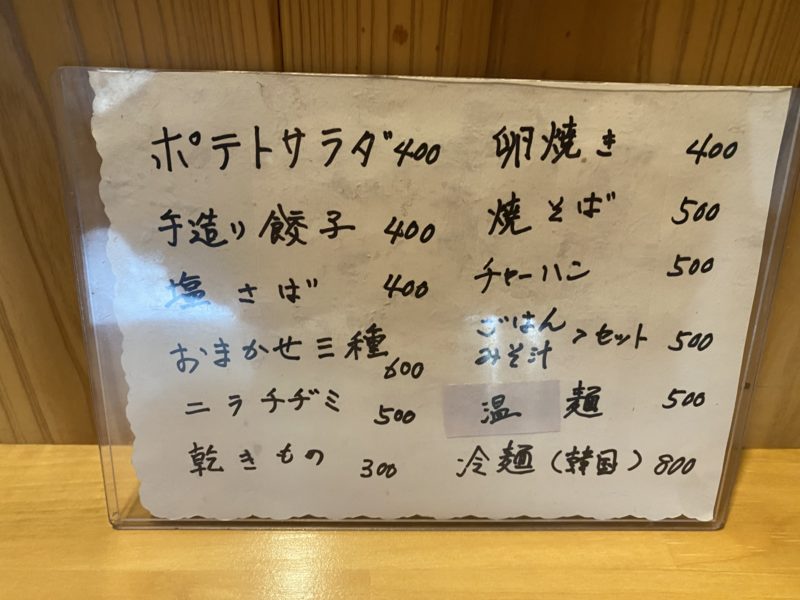 ポテトサラダ 400
手造り餃子 400
塩さば 400
おまかせ三種 600
ニラチヂミ 500
乾きもの 300
卵焼き 400
焼そば 500
チャーハン 500
ごはん
みそ汁 >セット 500
温麺 500
冷麺(韓国) 800